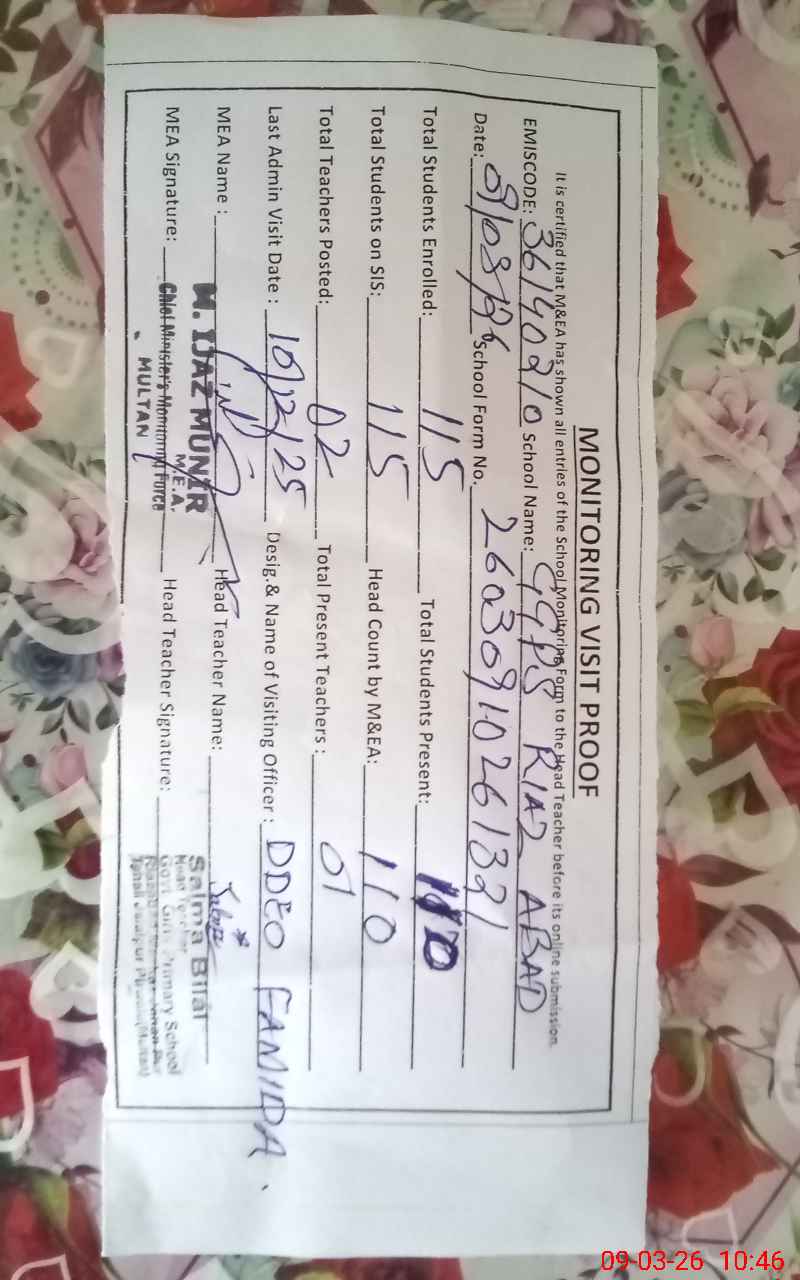 MONITORING VISIT PROOF
It is certified that M&EA has shown all entries of the School Monitoring Form to the Head Teacher before its online submission.
EMISCODE: 36140210 School Name: GGPS RIAZ ABAD
Date: 09/03/26 School Form No. 26030910261321
Total Students Enrolled: 115 Total Students Present: 110
Total Students on SIS: 115 Head Count by M&EA: 110
Total Teachers Posted: 02 Total Present Teachers : 01
Last Admin Visit Date : 10/12/25 Desig.& Name of Visiting Officer : DDEO FAMIDA.
MEA Name : M. IJAZ MUNIR Head Teacher Name: Salma Bilal
M.E.A. Head Teacher
MEA Signature: Chief Minister's Monitoring Force Head Teacher Signature: Govt. Girls Primary School
MULTAN
09-03-26 10:46